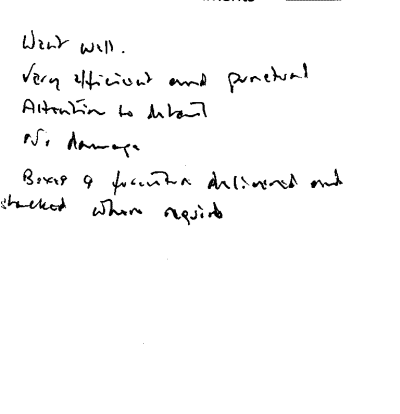 Went well.
Very efficient and punctual
Attention to detail
No damage
Boxes & furniture delivered and
stacked where required